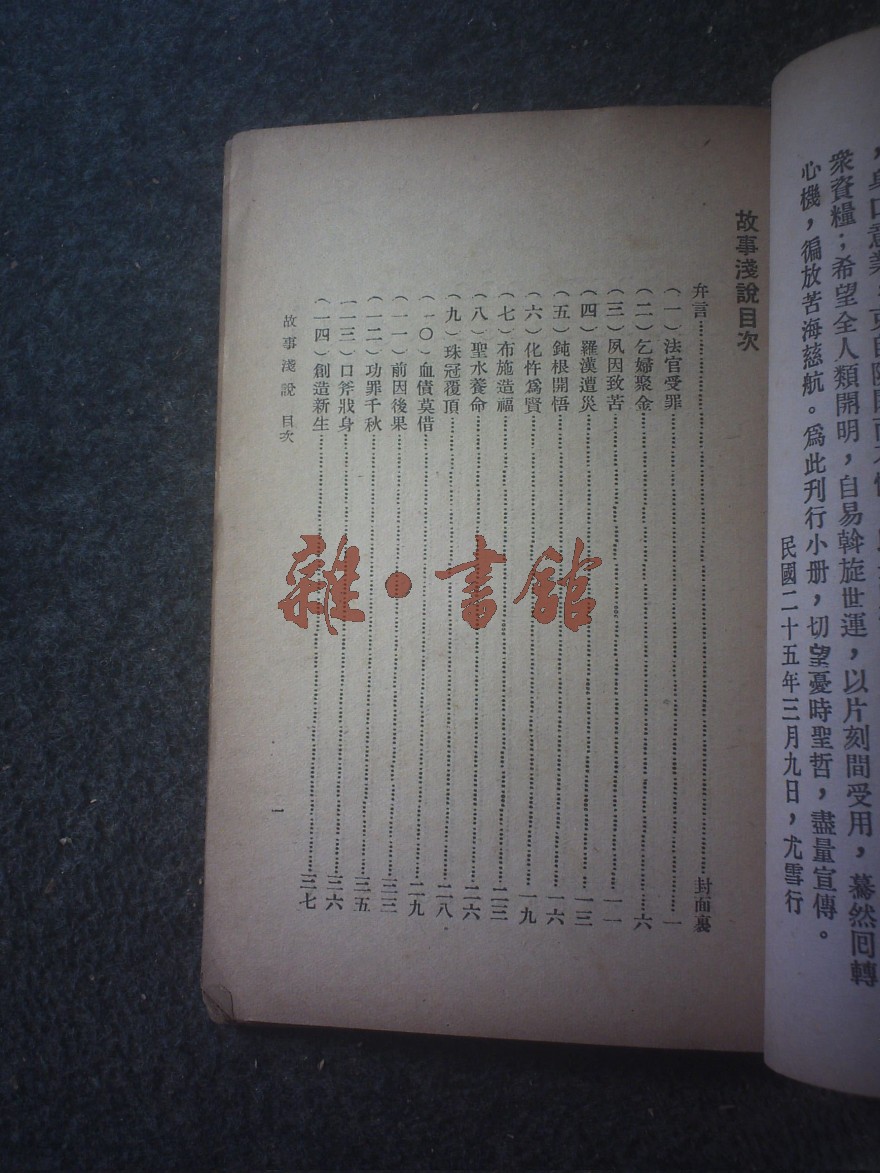 ，身口意業
衆資糧；希望全人類開明，自易斡旋世運，以片刻間受用，驀然囘轉
心機，徧放苦海慈航。爲此刊行小册，切望憂時聖哲，盡量宣傳。
民國二十五年三月九日，尤雪行
故事淺說目次
弁言……封面裏
（一）法官受罪……一
（二）乞婦聚金……六
（三）夙因致苦……一一
（四）羅漢遭災……一三
（五）鈍根開悟……一六
（六）化忤爲賢……一九
（七）布施造福……二三
（八）聖水養命……二六
（九）珠冠覆頂……二八
（一〇）血債莫借……二九
（一一）前因後果……三三
（一二）功罪千秋……三五
（一三）口斧戕身……三六
（一四）創造新生……三七
故事淺說 目次
一
雜·書館